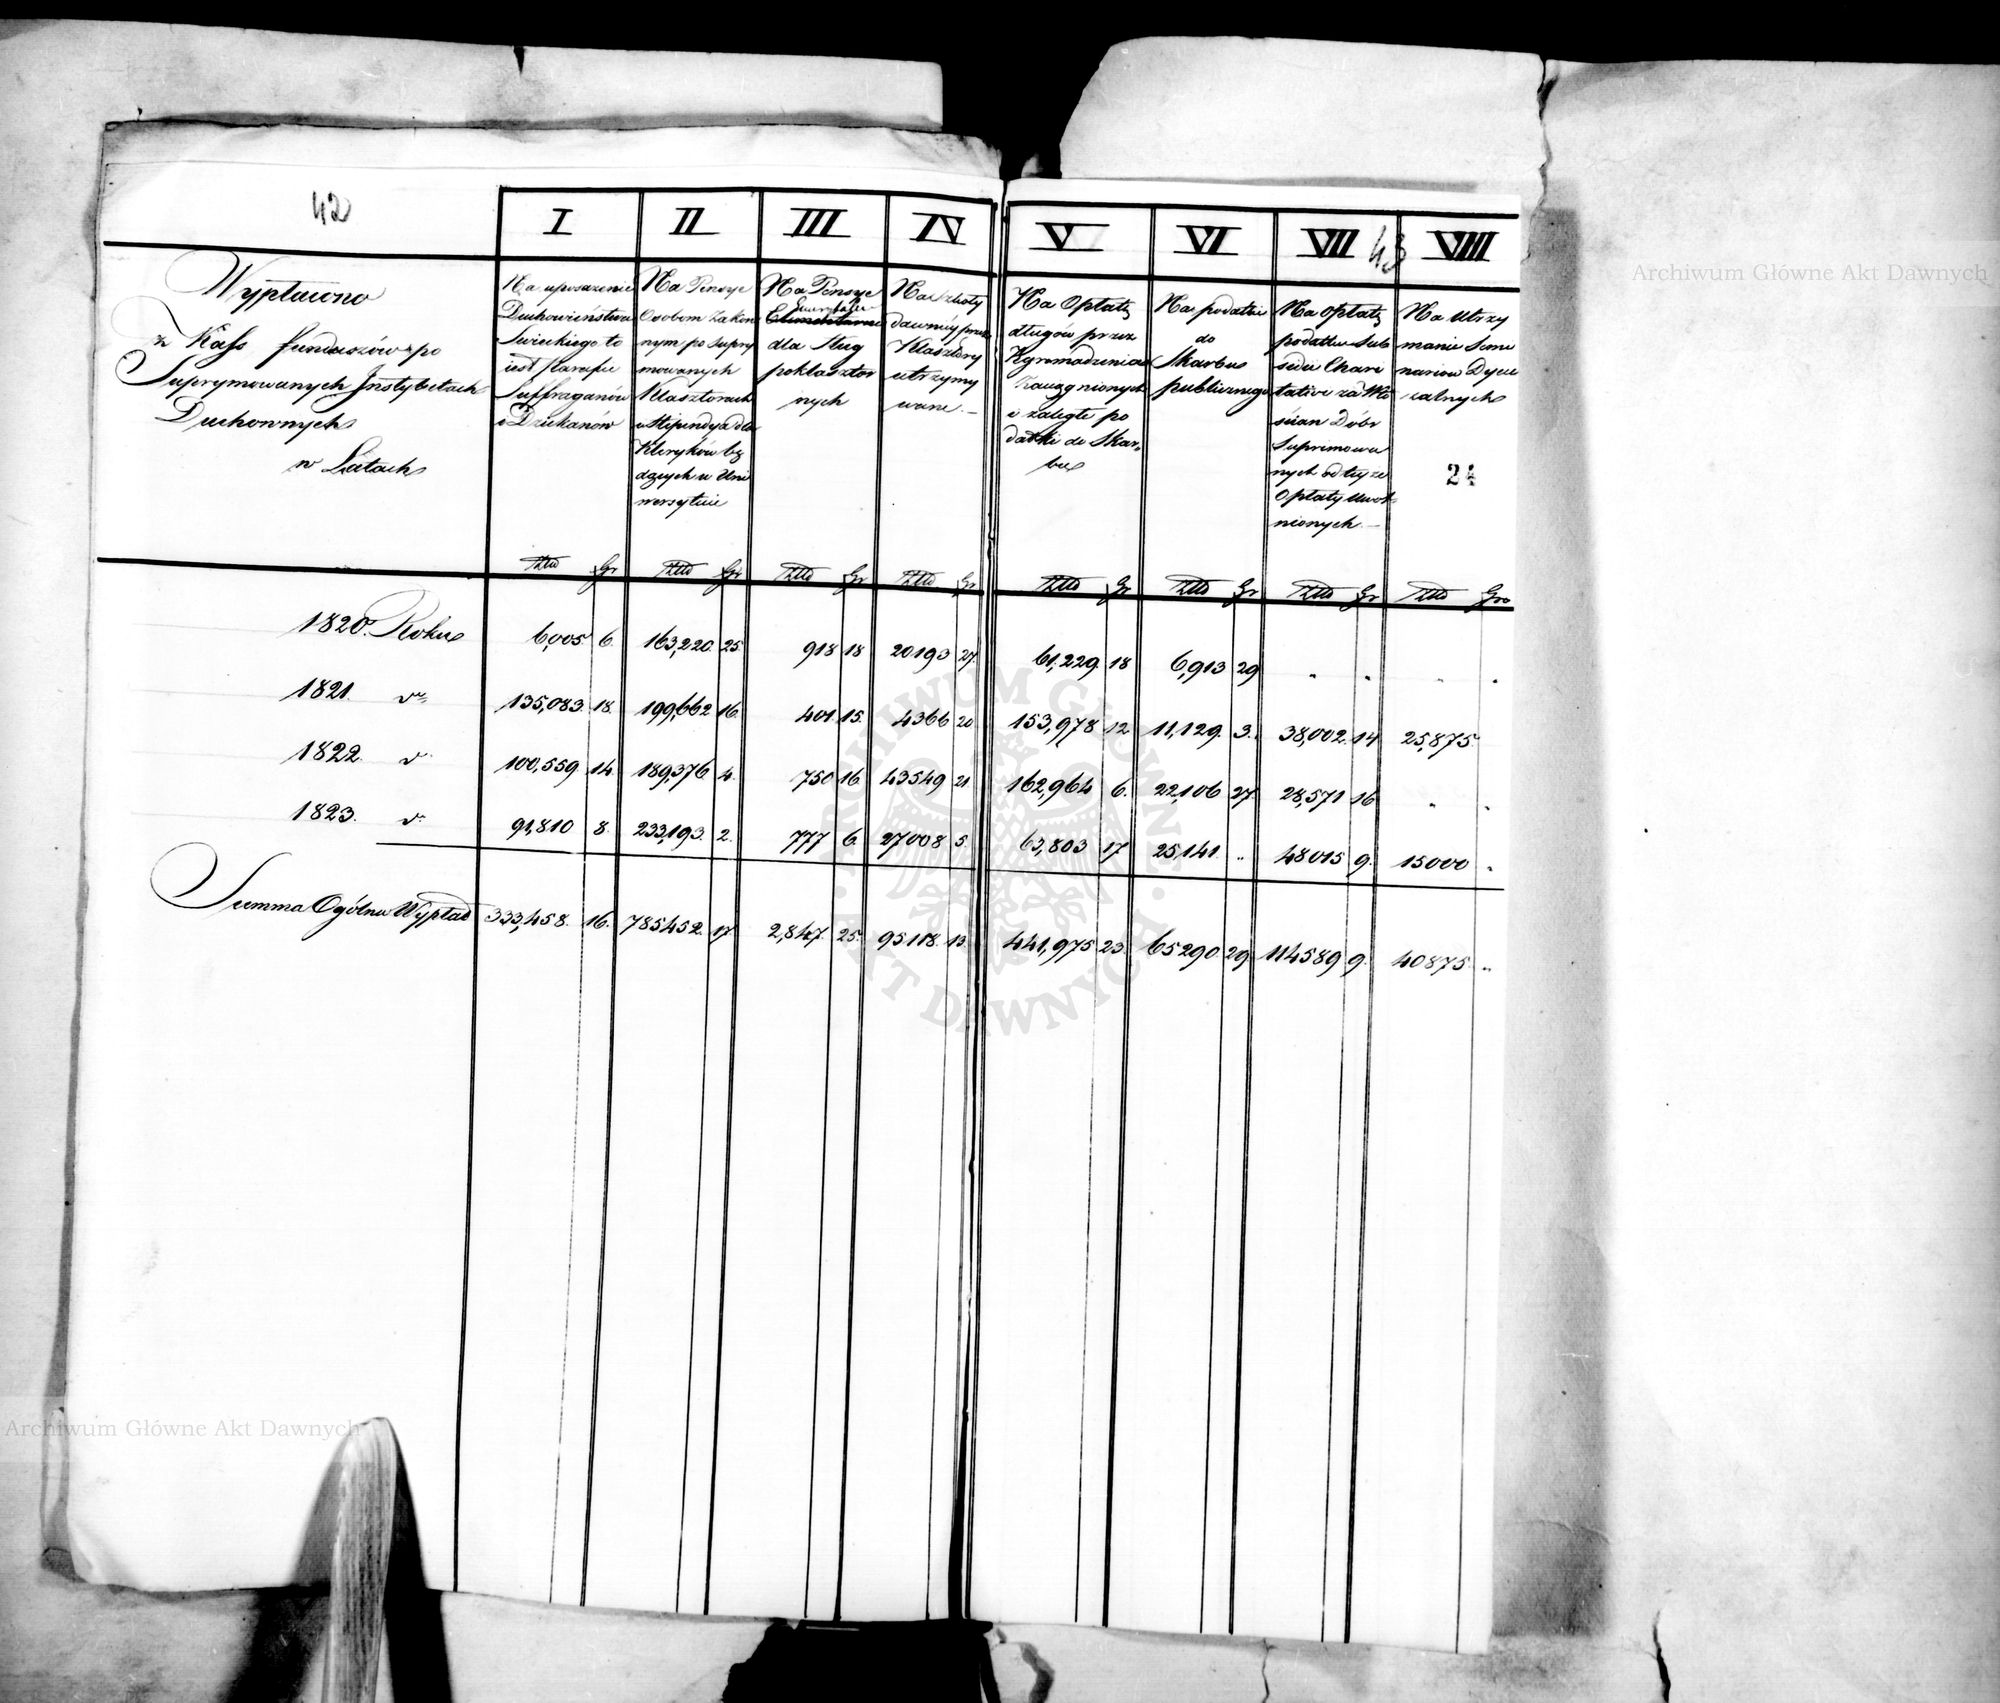 42
I II III IV V VI VII 43 VIII
Wypłacono
z Kass funduszów po
Suprymowanych Instytutach
Duchownych
w Latach
Na uposażenie
Duchowieństwa
Swieckiego to
iest Parafii
Suffraganów
i Dziekanów
Na Pensye
Osobom Zakon
nym po supry
mowanych
Klasztorach
i Stipendya dla
Kleryków bę
dących w Uni
wersytecie
Na Pensye
dla sług
poklasztor
nych
Na szkoły
dawniey przez
Klasztory
utrzymy
wane.–
Na Opłatę
długów przez
Zgromadzenia
zaciągnionych
i zaległe po
datki do Skar
bu
Na podatki
do
Skarbu
publicznego
Na opłatę
podatku Sub
sidii Chari
tativi za Wło
ścian Dóbr
Suprimowa
nych od tey że
Opłaty uwol
nionych.–
Na utrzy
manie Semi
nariów Dyece
zalnych
24
Złtd Gr Złtd Gr Złtd Gr Złtd Gr Złtd Gr Złtd Gr Złtd Gr Złtd Gr
1820. Roku 6,005 6. 163,220. 25 918 18 20193 27. 61,229. 18 6,913 29 " " " "
1821. do 135,083. 18. 199,662 16. 401 15. 4366 20 153,978 12 11,129. 3. 38,002. 14 25,875.
1822. do 100,559 14. 189,376 4. 750 16 43549 21 162,964 6. 22,106 27. 28,571 16 " "
1823. do 91,810 8. 233,193. 2. 777 6 27008 5. 63,803 17 25,141. " 48015 9. 15000 "
Summa Ogólna Wypłat 333,458. 16. 785452. 17. 2,847. 25. 95118. 13. 441,975 23. 65290. 29 114589 9. 40875. "
Archiwum Główne Akt Dawnych
Archiwum Główne Akt Dawnych
ARCHIWUM GŁÓWNE AKT DAWNYCH